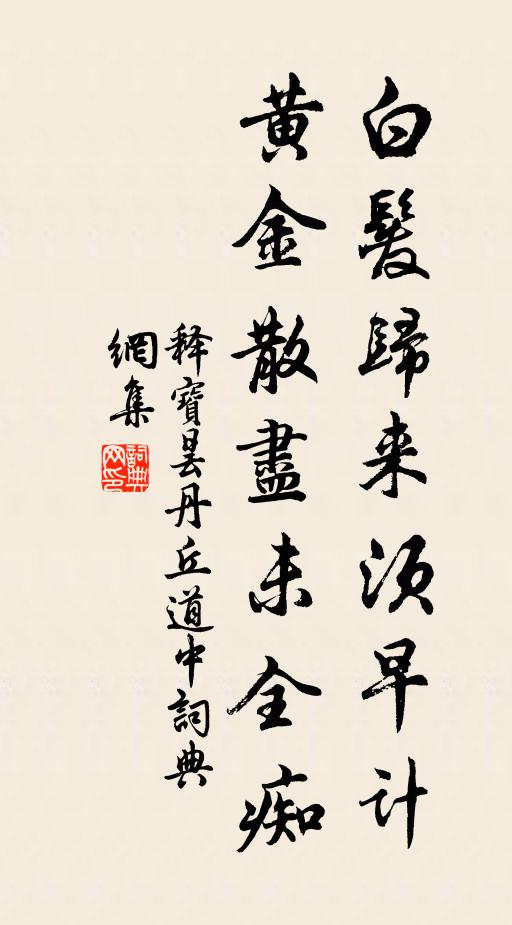 白髮歸来須早計
黃金散盡未全痴
释寶昙丹丘道中詞典
網集
詞典
网印